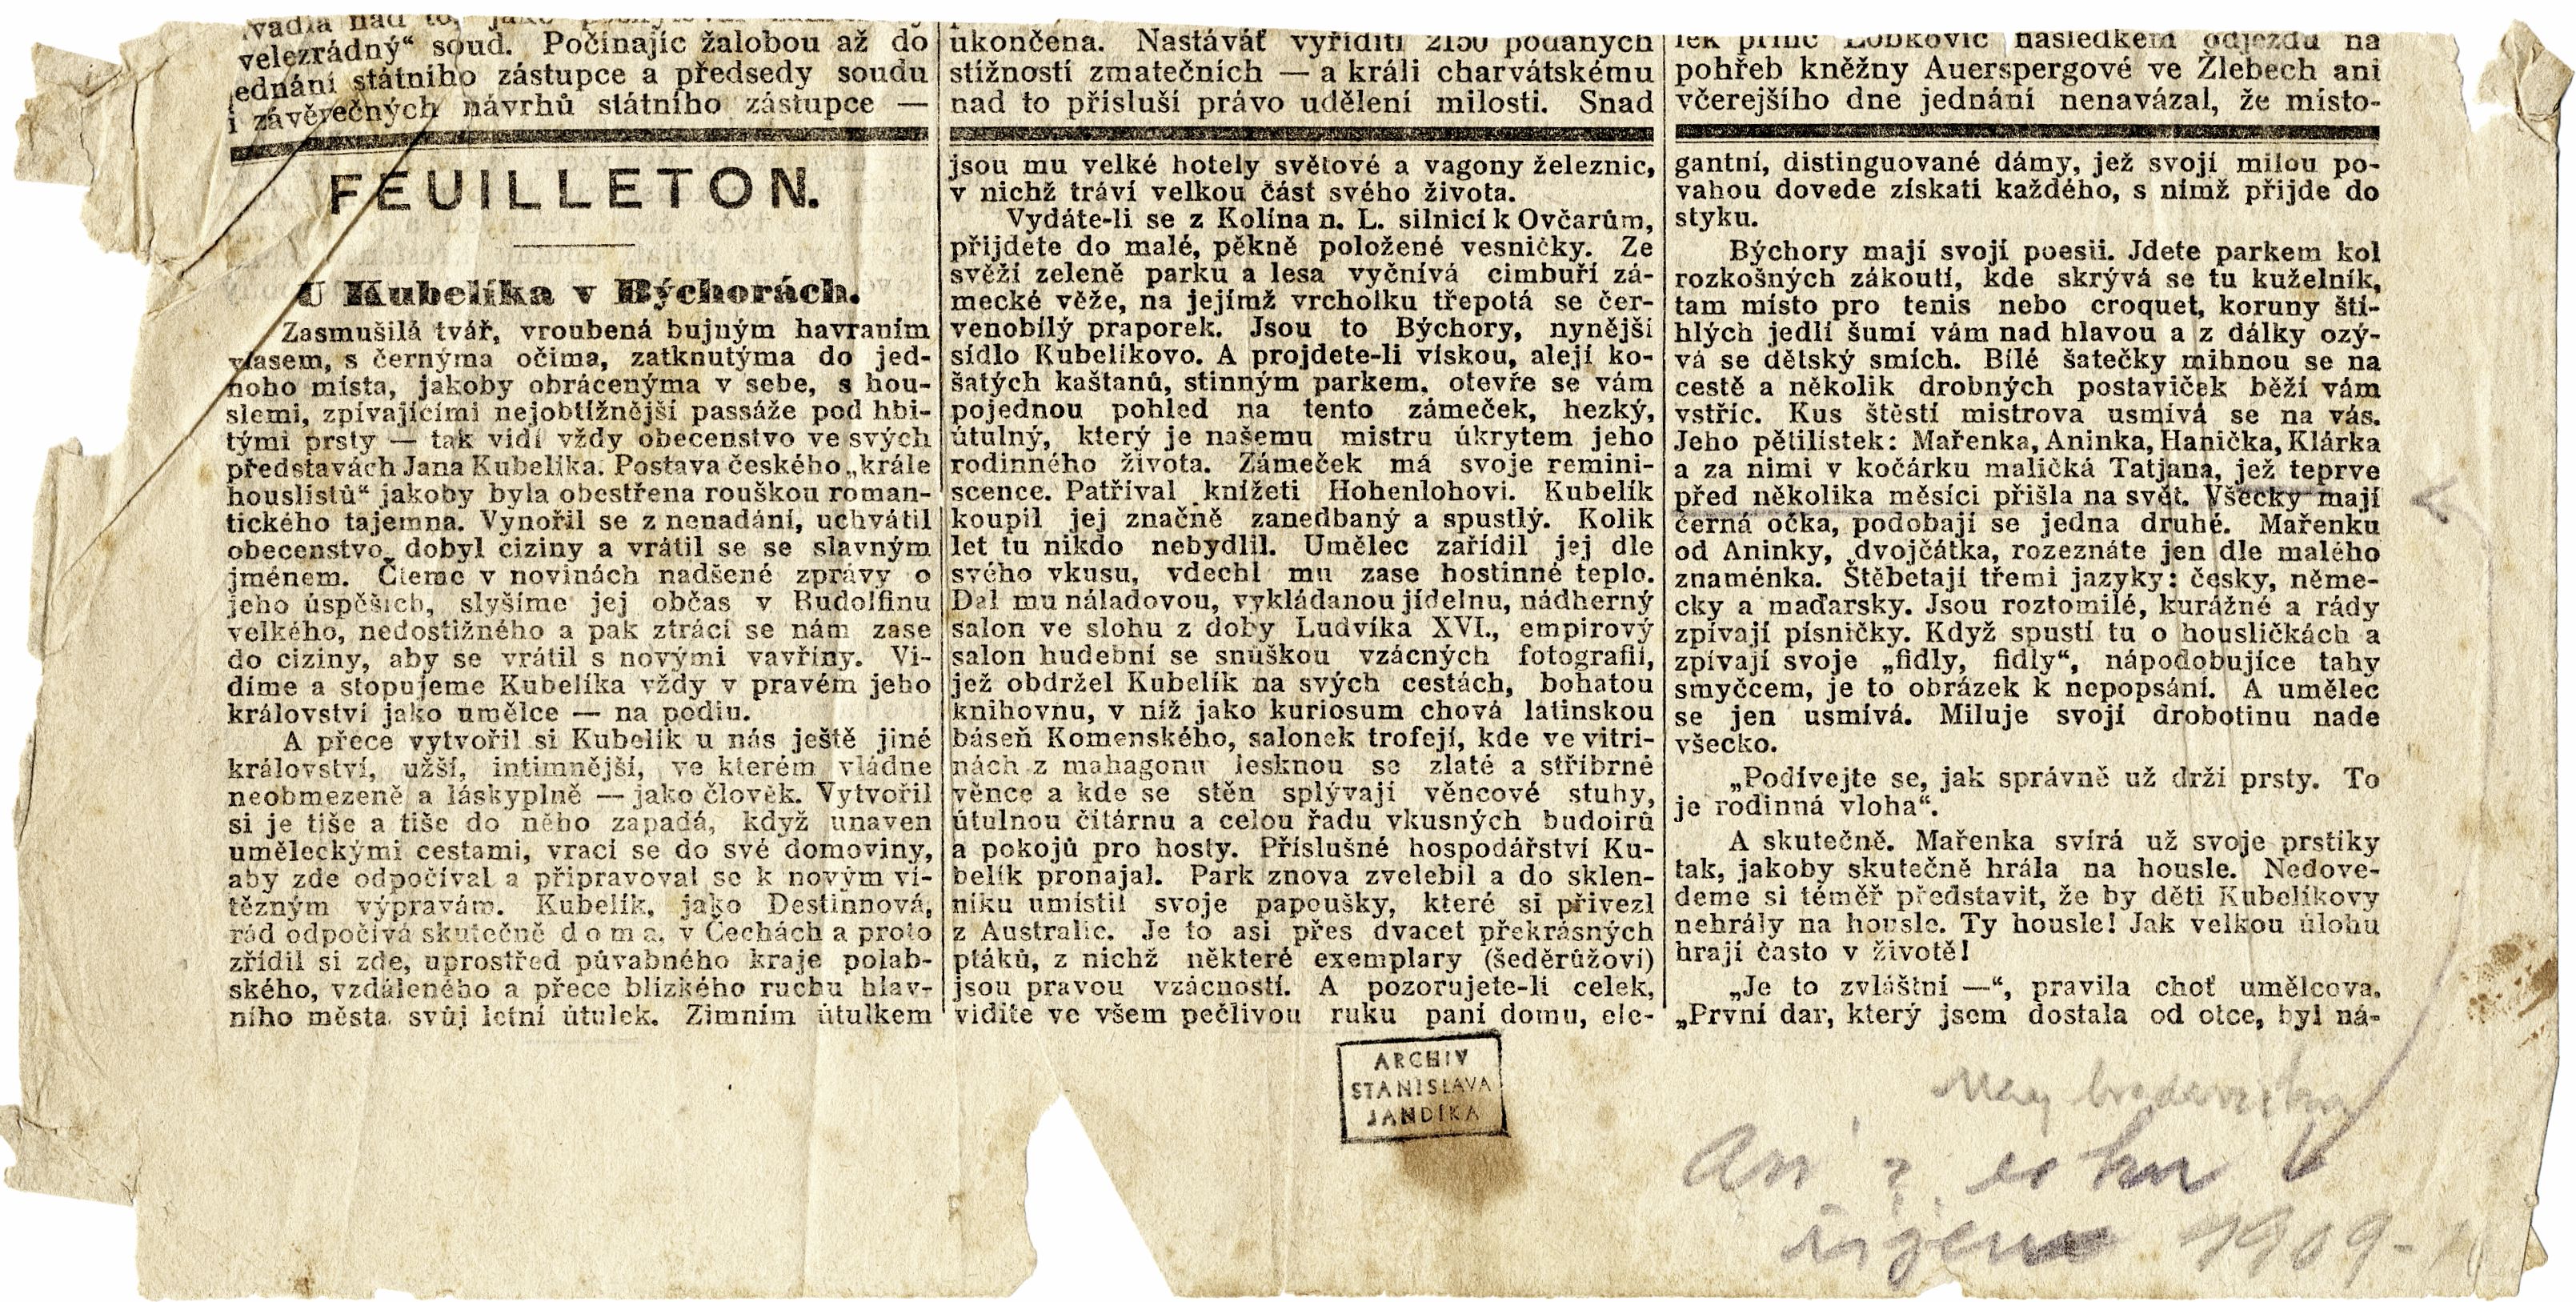 velezrádný“ soud. Počínajíc žalobou až do
jednání státního zástupce a předsedy soudu
i závěrečných návrhů státního zástupce —
FEUILLETON.
U Kubelíka v Býchorách.
Zasmušilá tvář, vroubená bujným havraním
vlasem, s černýma očima, zatknutýma do jed-
noho místa, jakoby obrácenýma v sebe, s hou-
slemi, zpívajícími nejobtížnější passáže pod hbi-
tými prsty — tak vidí vždy obecenstvo ve svých
představách Jana Kubelíka. Postava českého „krále
houslistů“ jakoby byla obestřena rouškou roman-
tického tajemna. Vynořil se z nenadání, uchvátil
obecenstvo, dobyl ciziny a vrátil se se slavným
jménem. Čteme v novinách nadšené zprávy o
jeho úspěších, slyšíme jej občas v Rudolfinu
velkého, nedostižného a pak ztrácí se nám zase
do ciziny, aby se vrátil s novými vavříny. Vi-
díme a stopujeme Kubelíka vždy v pravém jeho
království jako umělce — na podiu.
A přece vytvořil si Kubelík u nás ještě jiné
království, užší, intimnější, ve kterém vládne
neobmezeně a láskyplně — jako člověk. Vytvořil
si je tiše a tiše do něho zapadá, když unaven
uměleckými cestami, vrací se do své domoviny,
aby zde odpočíval a připravoval se k novým ví-
tězným výpravám. Kubelík, jako Destinnová,
rád odpočívá skutečně doma, v Čechách a proto
zřídil si zde, uprostřed půvabného kraje polab-
ského, vzdáleného a přece blízkého ruchu hlav-
ního města, svůj letní útulek. Zimním útulkem
ukončena. Nastáváť vyříditi 2150 podaných
stížností zmatečních — a králi charvátskému
nad to přísluší právo udělení milosti. Snad
jsou mu velké hotely světové a vagony železnic,
v nichž tráví velkou část svého života.
Vydáte-li se z Kolína n. L. silnicí k Ovčarům,
přijdete do malé, pěkně položené vesničky. Ze
svěží zeleně parku a lesa vyčnívá cimbuří zá-
mecké věže, na jejímž vrcholku třepotá se čer-
venobílý praporek. Jsou to Býchory, nynější
sídlo Kubelíkovo. A projdete-li vískou, alejí ko-
šatých kaštanů, stinným parkem, otevře se vám
pojednou pohled na tento zámeček, hezký,
útulný, který je našemu mistru úkrytem jeho
rodinného života. Zámeček má svoje remini-
scence. Patříval knížeti Hohenlohovi. Kubelík
koupil jej značně zanedbaný a spustlý. Kolik
let tu nikdo nebydlil. Umělec zařídil jej dle
svého vkusu, vdechl mu zase hostinné teplo.
Dal mu náladovou, vykládanou jídelnu, nádherný
salon ve slohu z doby Ludvíka XVI., empirový
salon hudební se snůškou vzácných fotografií,
jež obdržel Kubelík na svých cestách, bohatou
knihovnu, v níž jako kuriosum chová latinskou
báseň Komenského, salonek trofejí, kde ve vitri-
nách z mahagonu lesknou se zlaté a stříbrné
věnce a kde se stěn splývají věncové stuhy,
útulnou čítárnu a celou řadu vkusných budoirů
a pokojů pro hosty. Příslušné hospodářství Ku-
belík pronajal. Park znova zvelebil a do sklen-
níku umístil svoje papoušky, které si přivezl
z Australie. Je to asi přes dvacet překrásných
ptáků, z nichž některé exemplary (šeděrůžoví)
jsou pravou vzácností. A pozorujete-li celek,
vidíte ve všem pečlivou ruku paní domu, ele-
lek princ Lobkovic následkem odjezdu na
pohřeb kněžny Auerspergové ve Žlebech ani
včerejšího dne jednání nenavázal, že místo-
gantní, distinguované dámy, jež svojí milou po-
vahou dovede získati každého, s nímž přijde do
styku.
Býchory mají svojí poesii. Jdete parkem kol
rozkošných zákoutí, kde skrývá se tu kuželník,
tam místo pro tenis nebo croquet, koruny ští-
hlých jedlí šumí vám nad hlavou a z dálky ozý-
vá se dětský smích. Bílé šatečky mihnou se na
cestě a několik drobných postaviček běží vám
vstříc. Kus štěstí mistrova usmívá se na vás.
Jeho pětilístek: Mařenka, Aninka, Hanička, Klárka
a za nimi v kočárku maličká Tatjana, jež teprve
před několika měsíci přišla na svět. Všecky mají
černá očka, podobají se jedna druhé. Mařenku
od Aninky, dvojčátka, rozeznáte jen dle malého
znaménka. Štěbetají třemi jazyky: česky, něme-
cky a maďarsky. Jsou roztomilé, kurážné a rády
zpívají písničky. Když spustí tu o housličkách a
zpívají svoje „fidly, fidly“, nápodobujíce tahy
smyčcem, je to obrázek k nepopsání. A umělec
se jen usmívá. Miluje svojí drobotinu nade
všecko.
„Podívejte se, jak správně už drží prsty. To
je rodinná vloha“.
A skutečně. Mařenka svírá už svoje prstíky
tak, jakoby skutečně hrála na housle. Nedove-
deme si téměř představit, že by děti Kubelíkovy
nehrály na housle. Ty housle! Jak velkou úlohu
hrají často v životě!
„Je to zvláštní —“, pravila choť umělcova.
„První dar, který jsem dostala od otce, byl ná-
ARCHIV
STANISLAVA
JANDÍKA
1909-